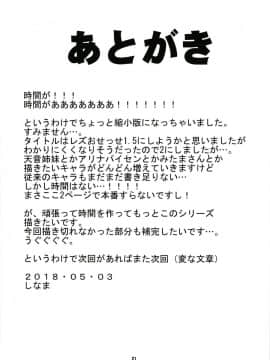 あとがき
時間が！！！
時間がああああああ！！！！！！！
というわけでちょっと縮小版になっちゃいました。
すみません…。
タイトルはレズおせっせ1.5にしようかと思いましたが
わかりにくくなりそうだったので2にしましたが…。
天音姉妹とかアリナパイセンとかみたまさんとか
描きたいキャラがどんどん増えていきますけど
従来のキャラもまだまだ書き足りない…
しかし時間はない…！！！！
まさここ2ページで本番すらないですし！
が、頑張って時間を作ってもっとこのシリーズ
描きたいです。
今回描き切れなかった部分も補完したいです…。
うぐぐぐぐ。
というわけで次回があればまた次回（変な文章）
２０１８・０５・０３
しなま